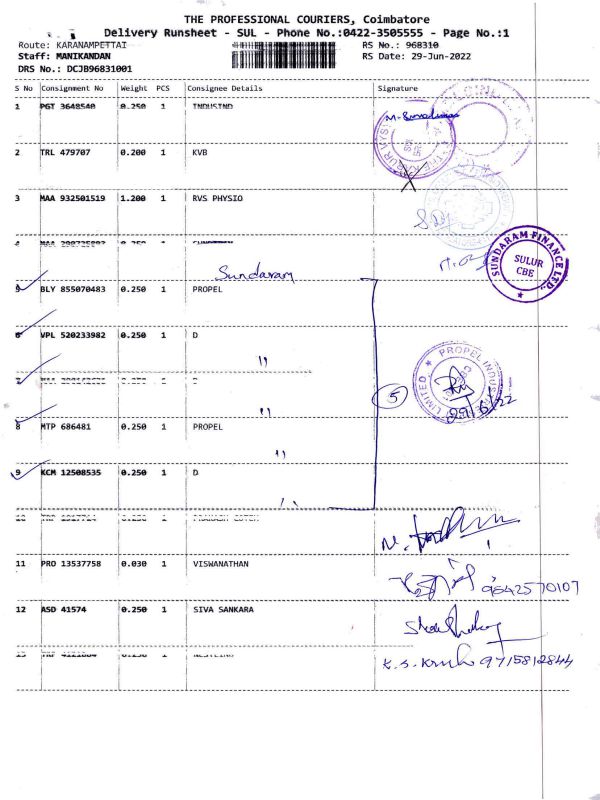 THE PROFESSIONAL COURIERS, Coimbatore
Delivery Runsheet - SUL - Phone No.:0422-3505555 - Page No.:1
Route: KARANAMPETTAI RS No.: 968310
Staff: MANIKANDAN RS Date: 29-Jun-2022
DRS No.: DCJB96831001
S No Consignment No Weight PCS Consignee Details Signature
1 PGT 3648540 0.250 1 INDUSIND
2 TRL 479707 0.200 1 KVB
3 MAA 932501519 1.200 1 RVS PHYSIO
4 1
SUNDARAM FINANCE LTD
SULUR
CBE
Sundaram
5 BLY 855070483 0.250 1 PROPEL
6 VPL 520233982 0.250 1 D
"
7 1 D
PROPEL INDUSTRIES LIMITED
5
29/6/22
"
8 MTP 686481 0.250 1 PROPEL
"
9 KCM 12508535 0.250 1 D
"
10 1
11 PRO 13537758 0.030 1 VISWANATHAN
9542570107
12 ASD 41574 0.250 1 SIVA SANKARA
13 1
9715812844